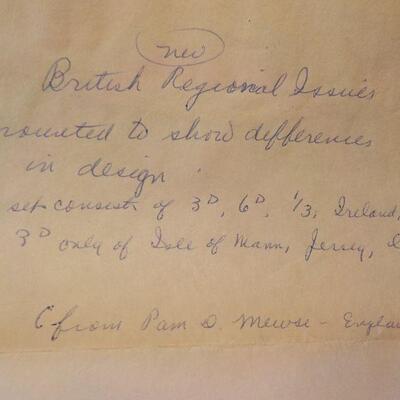 new
British Regional Issues
mounted to show differences
in design
set consists of 3D, 6D, 1/3, Ireland,
3D only of Isle of Mann, Jersey,
from Pam D. Mewse - Englan